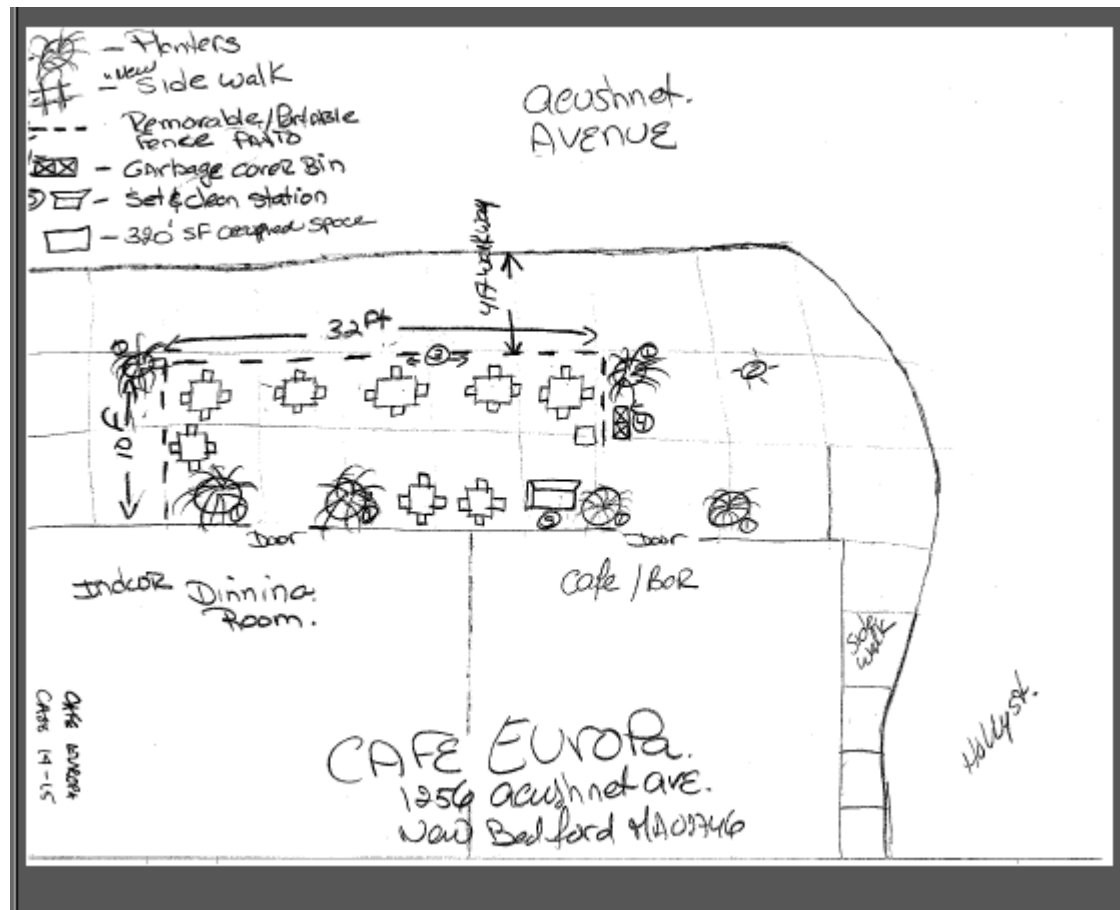 - Planters
- "New" Side walk
Removable/Portable
Fence PATIO
- Garbage cover Bin
5 - Set & clean station
- 320' SF occupied space
acushnet.
AVENUE
4ft walkway
32 ft
10 ft
1
3
1
2
4
1
1
5
1
1
Door
Door
Indoor Dinning
Room.
Cafe / BAR
Side
walk
Hollyst.
CAFE EUROPA
CASE 14-15
CAFE EUROPA.
1256 acushnet ave.
New Bedford MA 02746